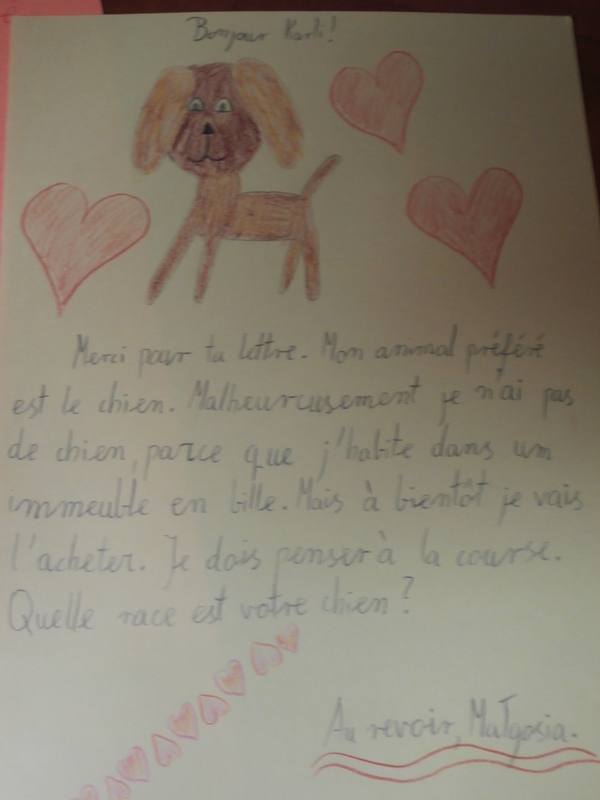 Bonjour Karli!
Merci pour ta lettre. Mon animal préféré
est le chien. Malheureusement je n'ai pas
de chien, parce que j'habite dans um
immeuble en bille. Mais à bientôt je vais
l'acheter. Je dois penser à la course.
Quelle race est votre chien?
Au revoir, Małgosia.